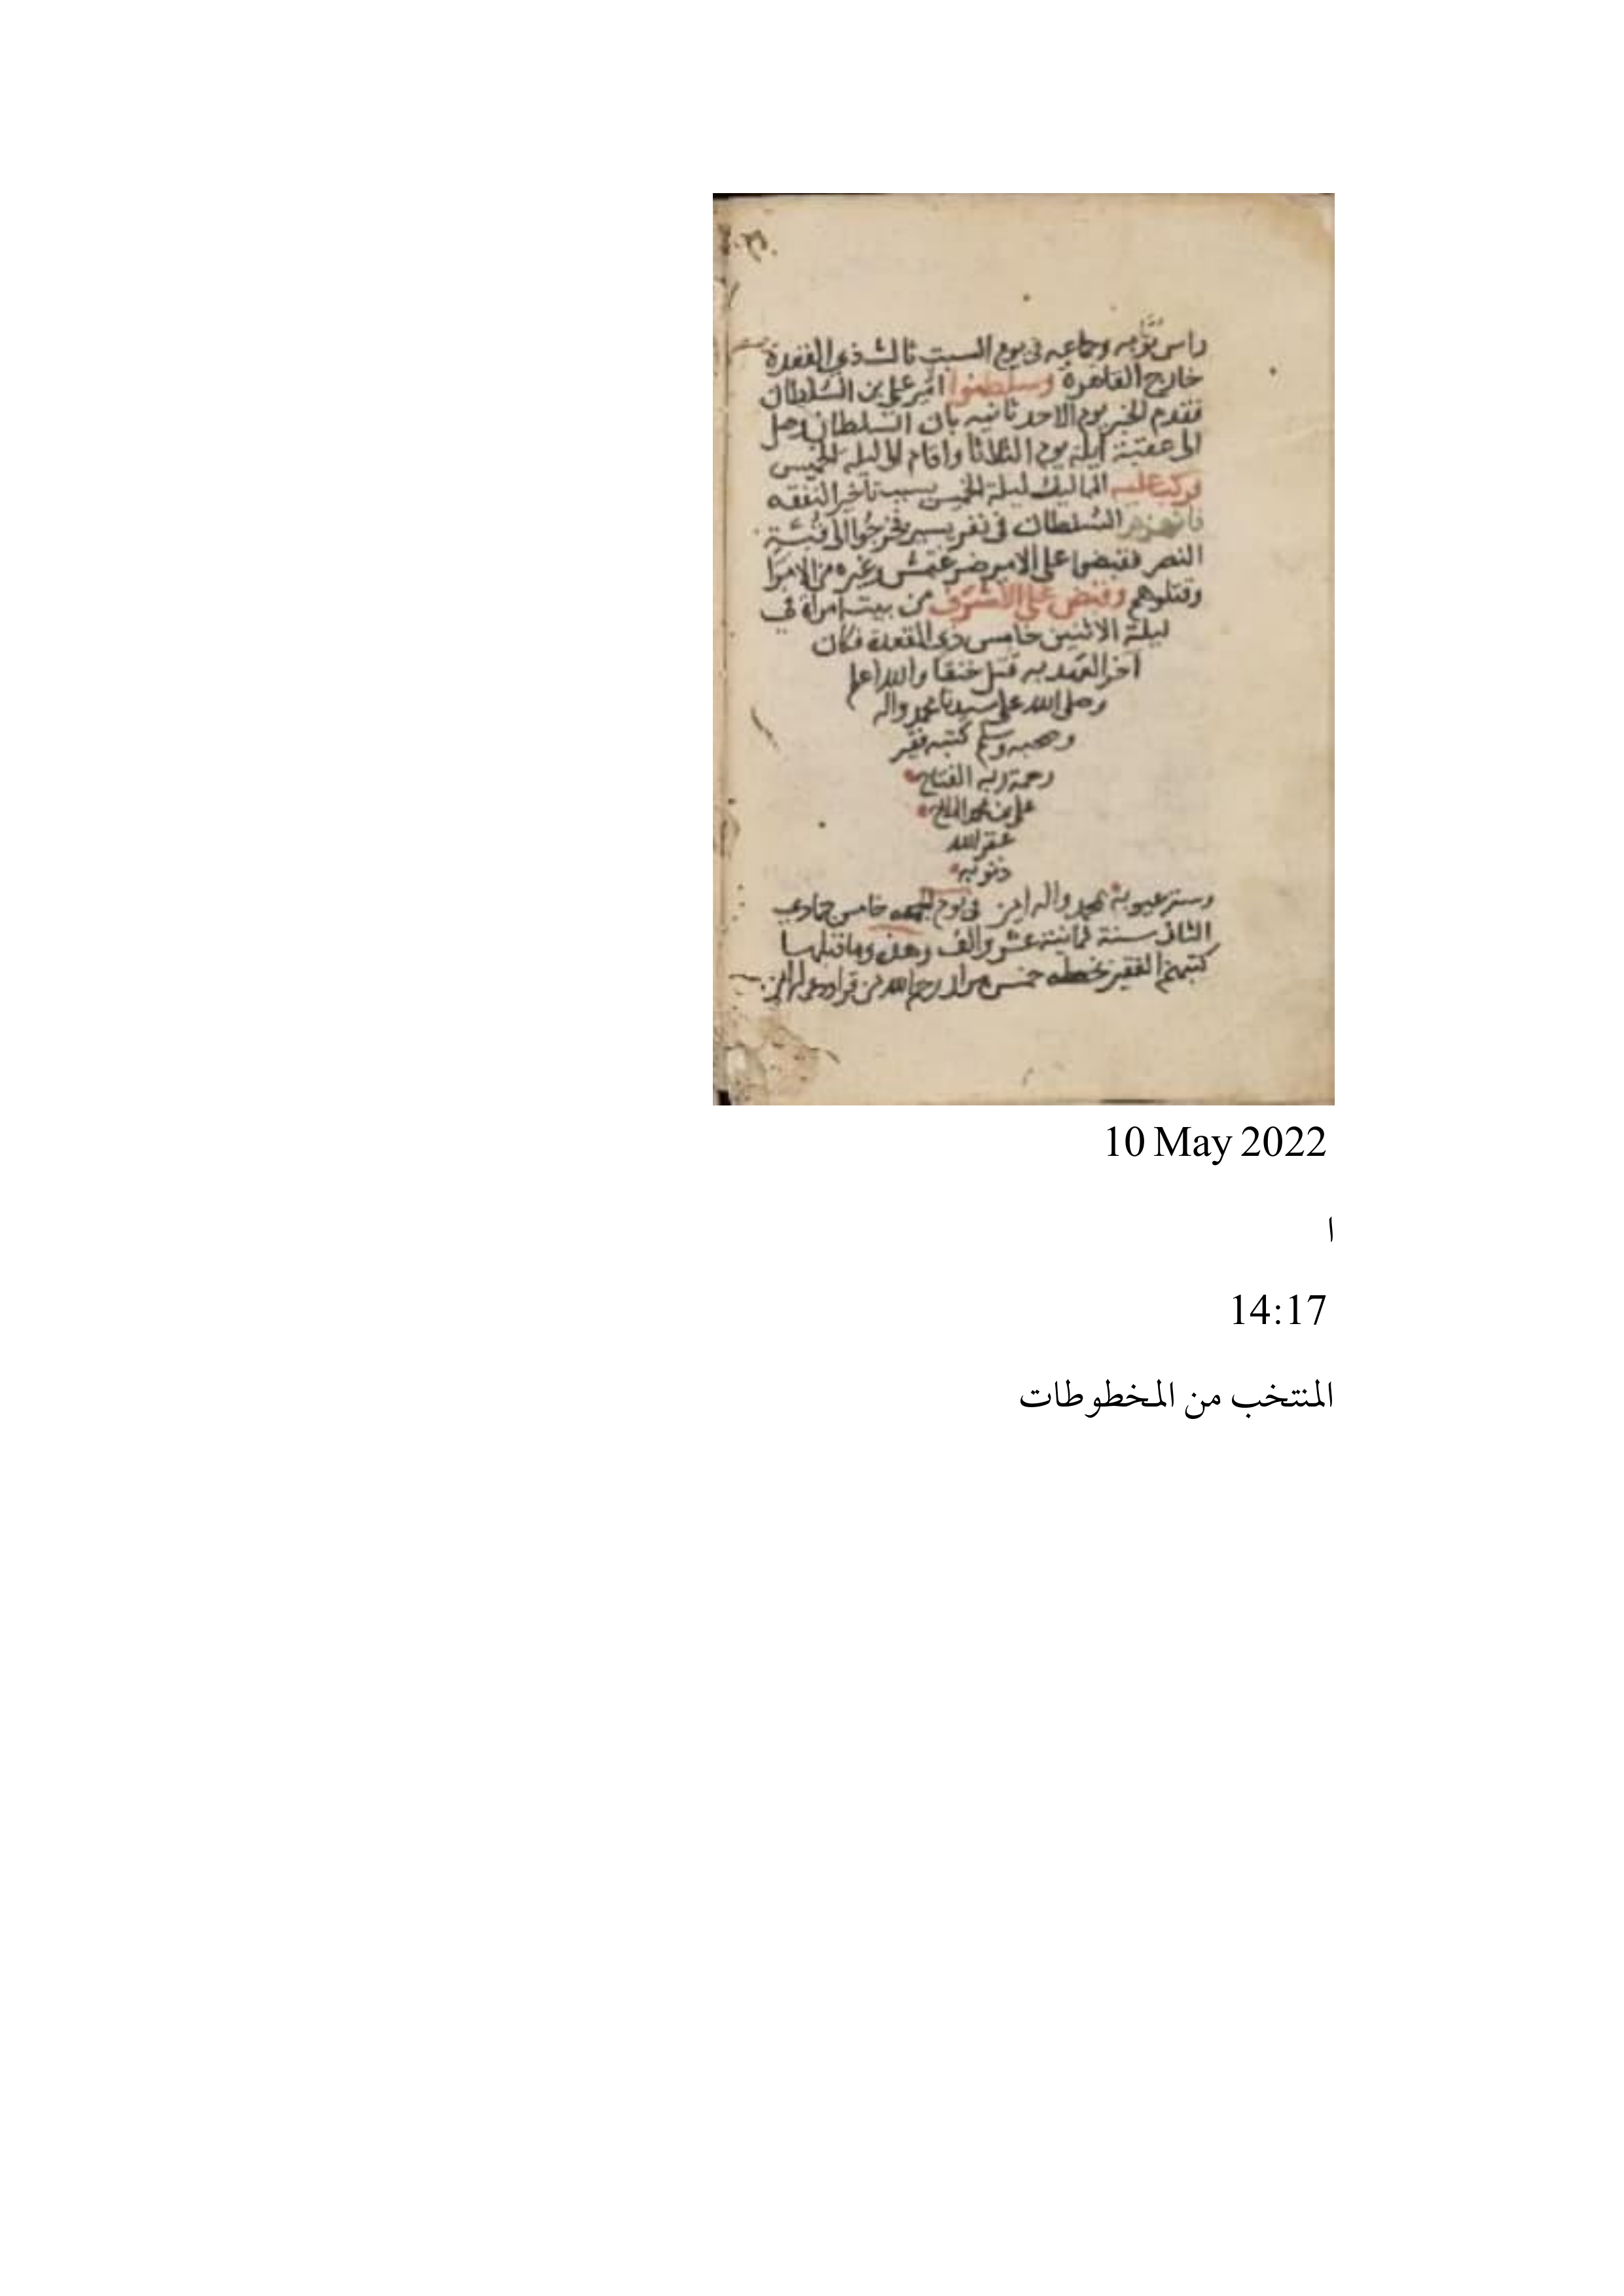 راس نوبه وجماعه في يوم السبت ثالث ذي القعدة
خارج القاهرة وسلطنوا امير علي بن السلطان
فقدم الخبر يوم الاحد ثانيه بان السلطان وصل
الى عقبة ايلة يوم الثلاثا واقام الى ليله الخميس
فركب عليه المماليك ليلة الخميس بسبب تاخر النفقه
فانهزم السلطان في نفر يسير فخرجوا الى قبة
النصر فقبضوا على الامير صرغتمش وغيره من الامرا
وقتلوهم وقبض على الاشرف من بيت امراة في
ليلة الاثنين خامس ذي القعدة فكان
اخر العهد به قتل خنقا والله اعلم
وصلى الله على سيدنا محمد واله
وصحبه وسلم كتبه فقير
رحمة ربه الفتاح
علي بن محمد الملاح
غفر الله
ذنوبه
وستر عيوبه بمحمد واله امين في يوم الجمعه خامس جمادي
الثاني سنة ثمانية عشر والف وهذه وما قبلها
كتبهم الفقير بخطه خمس رحم الله من قرا ودعى لهم امين
10 May 2022
ا
14:17
المنتخب من المخطوطات